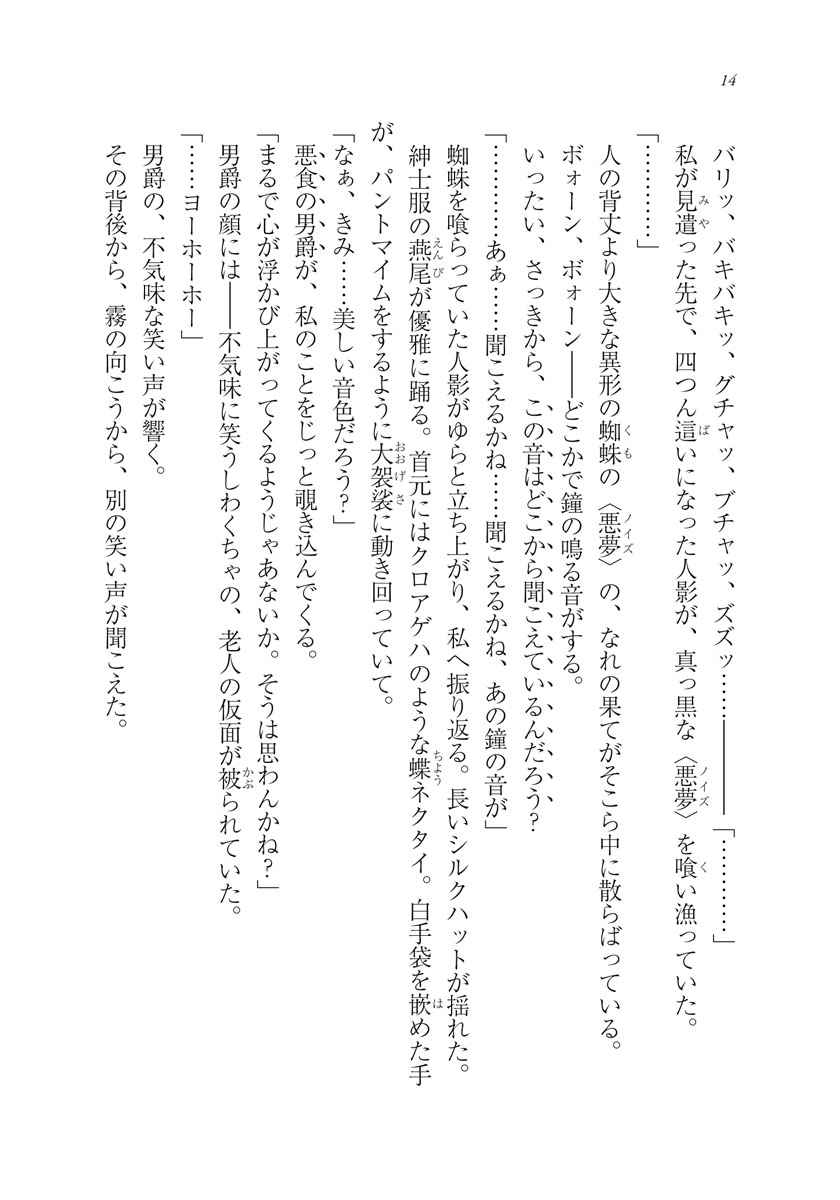 14
バリッ、バキバキッ、グチャッ、ブチャッ、ズズッ……――――「…………」
私が見遣った先で、四つん這いになった人影が、真っ黒な〈悪夢〉を喰い漁っていた。
「…………」
人の背丈より大きな異形の蜘蛛の〈悪夢〉の、なれの果てがそこら中に散らばっている。
ボォーン、ボォーン――どこかで鐘の鳴る音がする。
いったい、さっきから、この音はどこから聞こえているんだろう？
「…………あぁ……聞こえるかね……聞こえるかね、あの鐘の音が」
蜘蛛を喰らっていた人影がゆらと立ち上がり、私へ振り返る。長いシルクハットが揺れた。
紳士服の燕尾が優雅に踊る。首元にはクロアゲハのような蝶ネクタイ。白手袋を嵌めた手
が、パントマイムをするように大袈裟に動き回っていて。
「なぁ、きみ……美しい音色だろう？」
悪食の男爵が、私のことをじっと覗き込んでくる。
「まるで心が浮かび上がってくるようじゃあないか。そうは思わんかね？」
男爵の顔には――不気味に笑うしわくちゃの、老人の仮面が被られていた。
「……ヨーホーホー」
男爵の、不気味な笑い声が響く。
その背後から、霧の向こうから、別の笑い声が聞こえた。